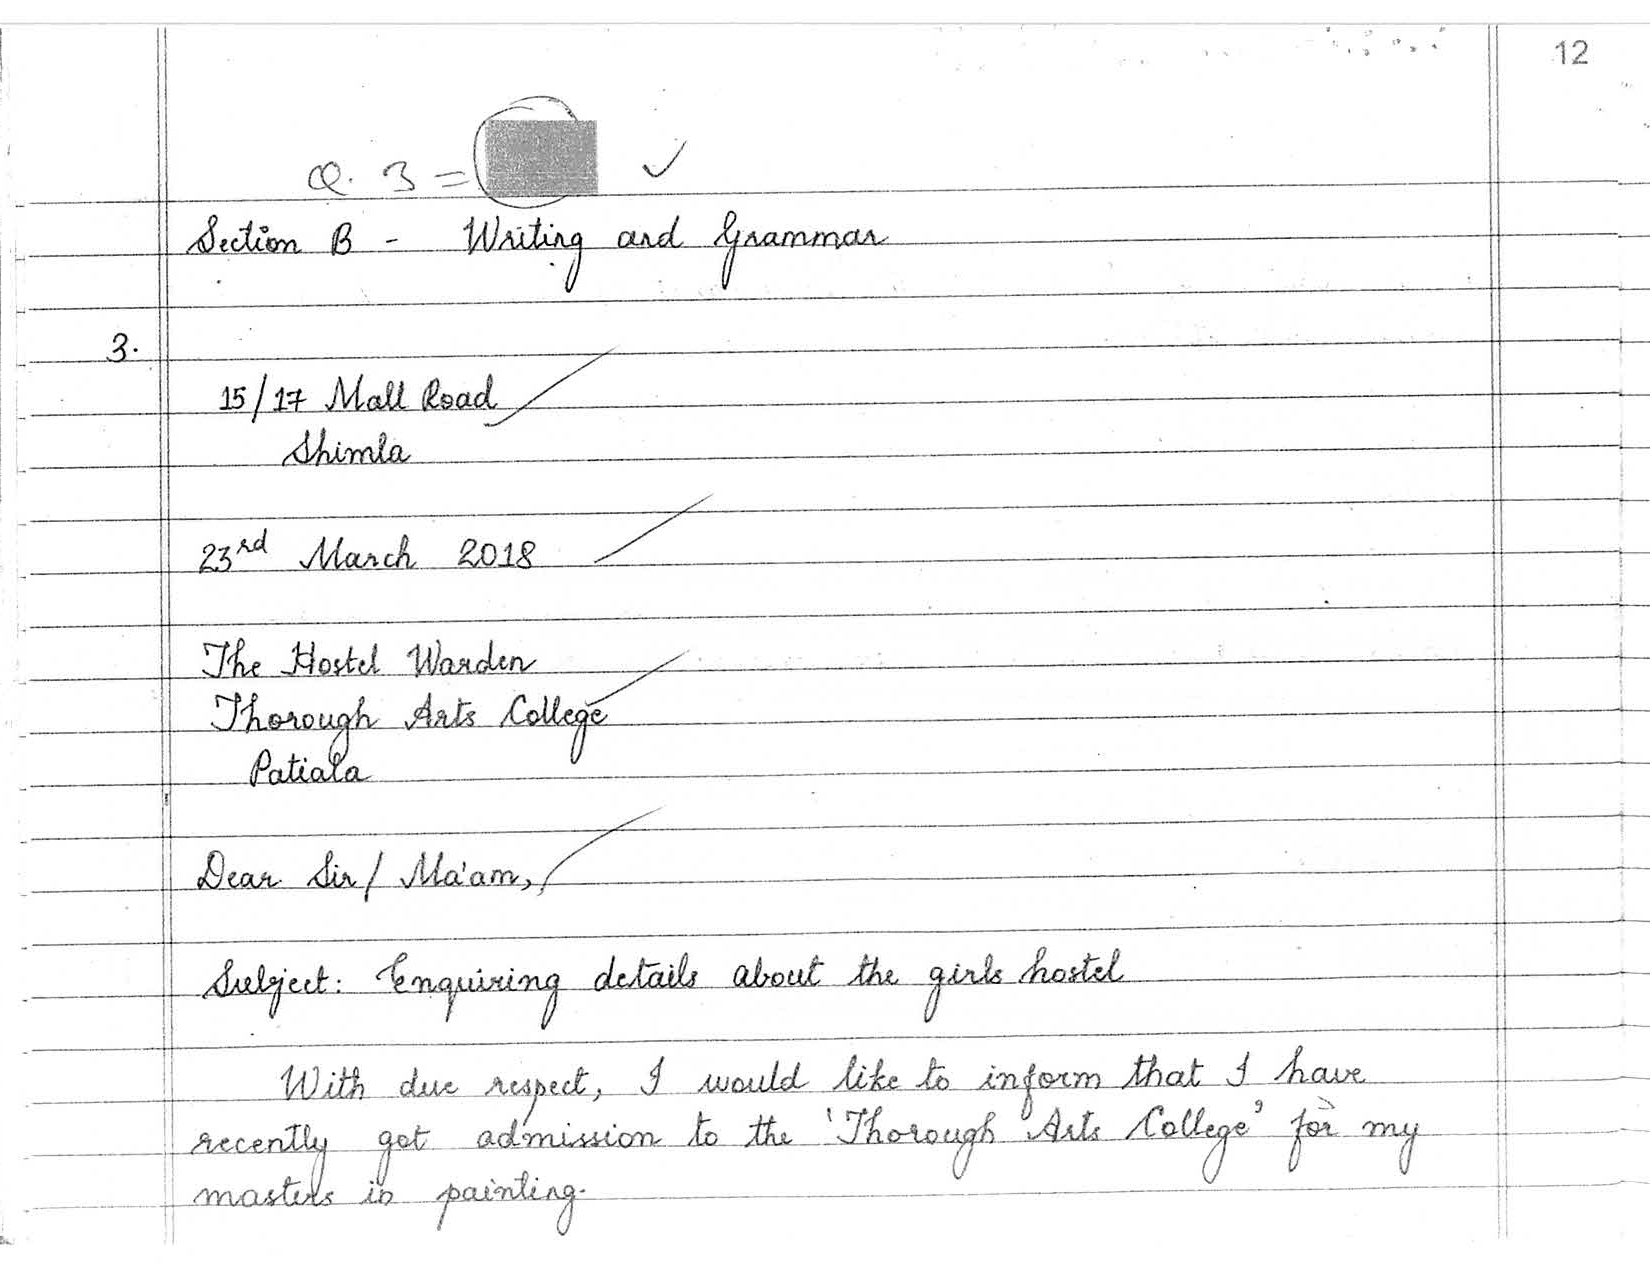 12
Q. 3 =
Section B - Writing and Grammar
3.
15/17 Mall Road
Shimla
23rd March 2018
The Hostel Warden
Thorough Arts College
Patiala
Dear Sir/ Ma'am,
Subject: Enquiring details about the girls hostel
With due respect, I would like to inform that I have
recently got admission to the 'Thorough Arts College' for my
masters in painting.